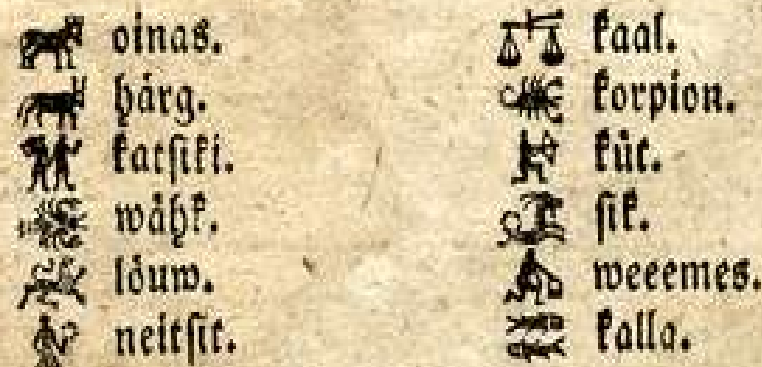 oinas.
härg.
katſiki.
wähk.
löuw.
neitſit.
kaal.
korpion.
küt.
ſik.
weeemes.
kalla.